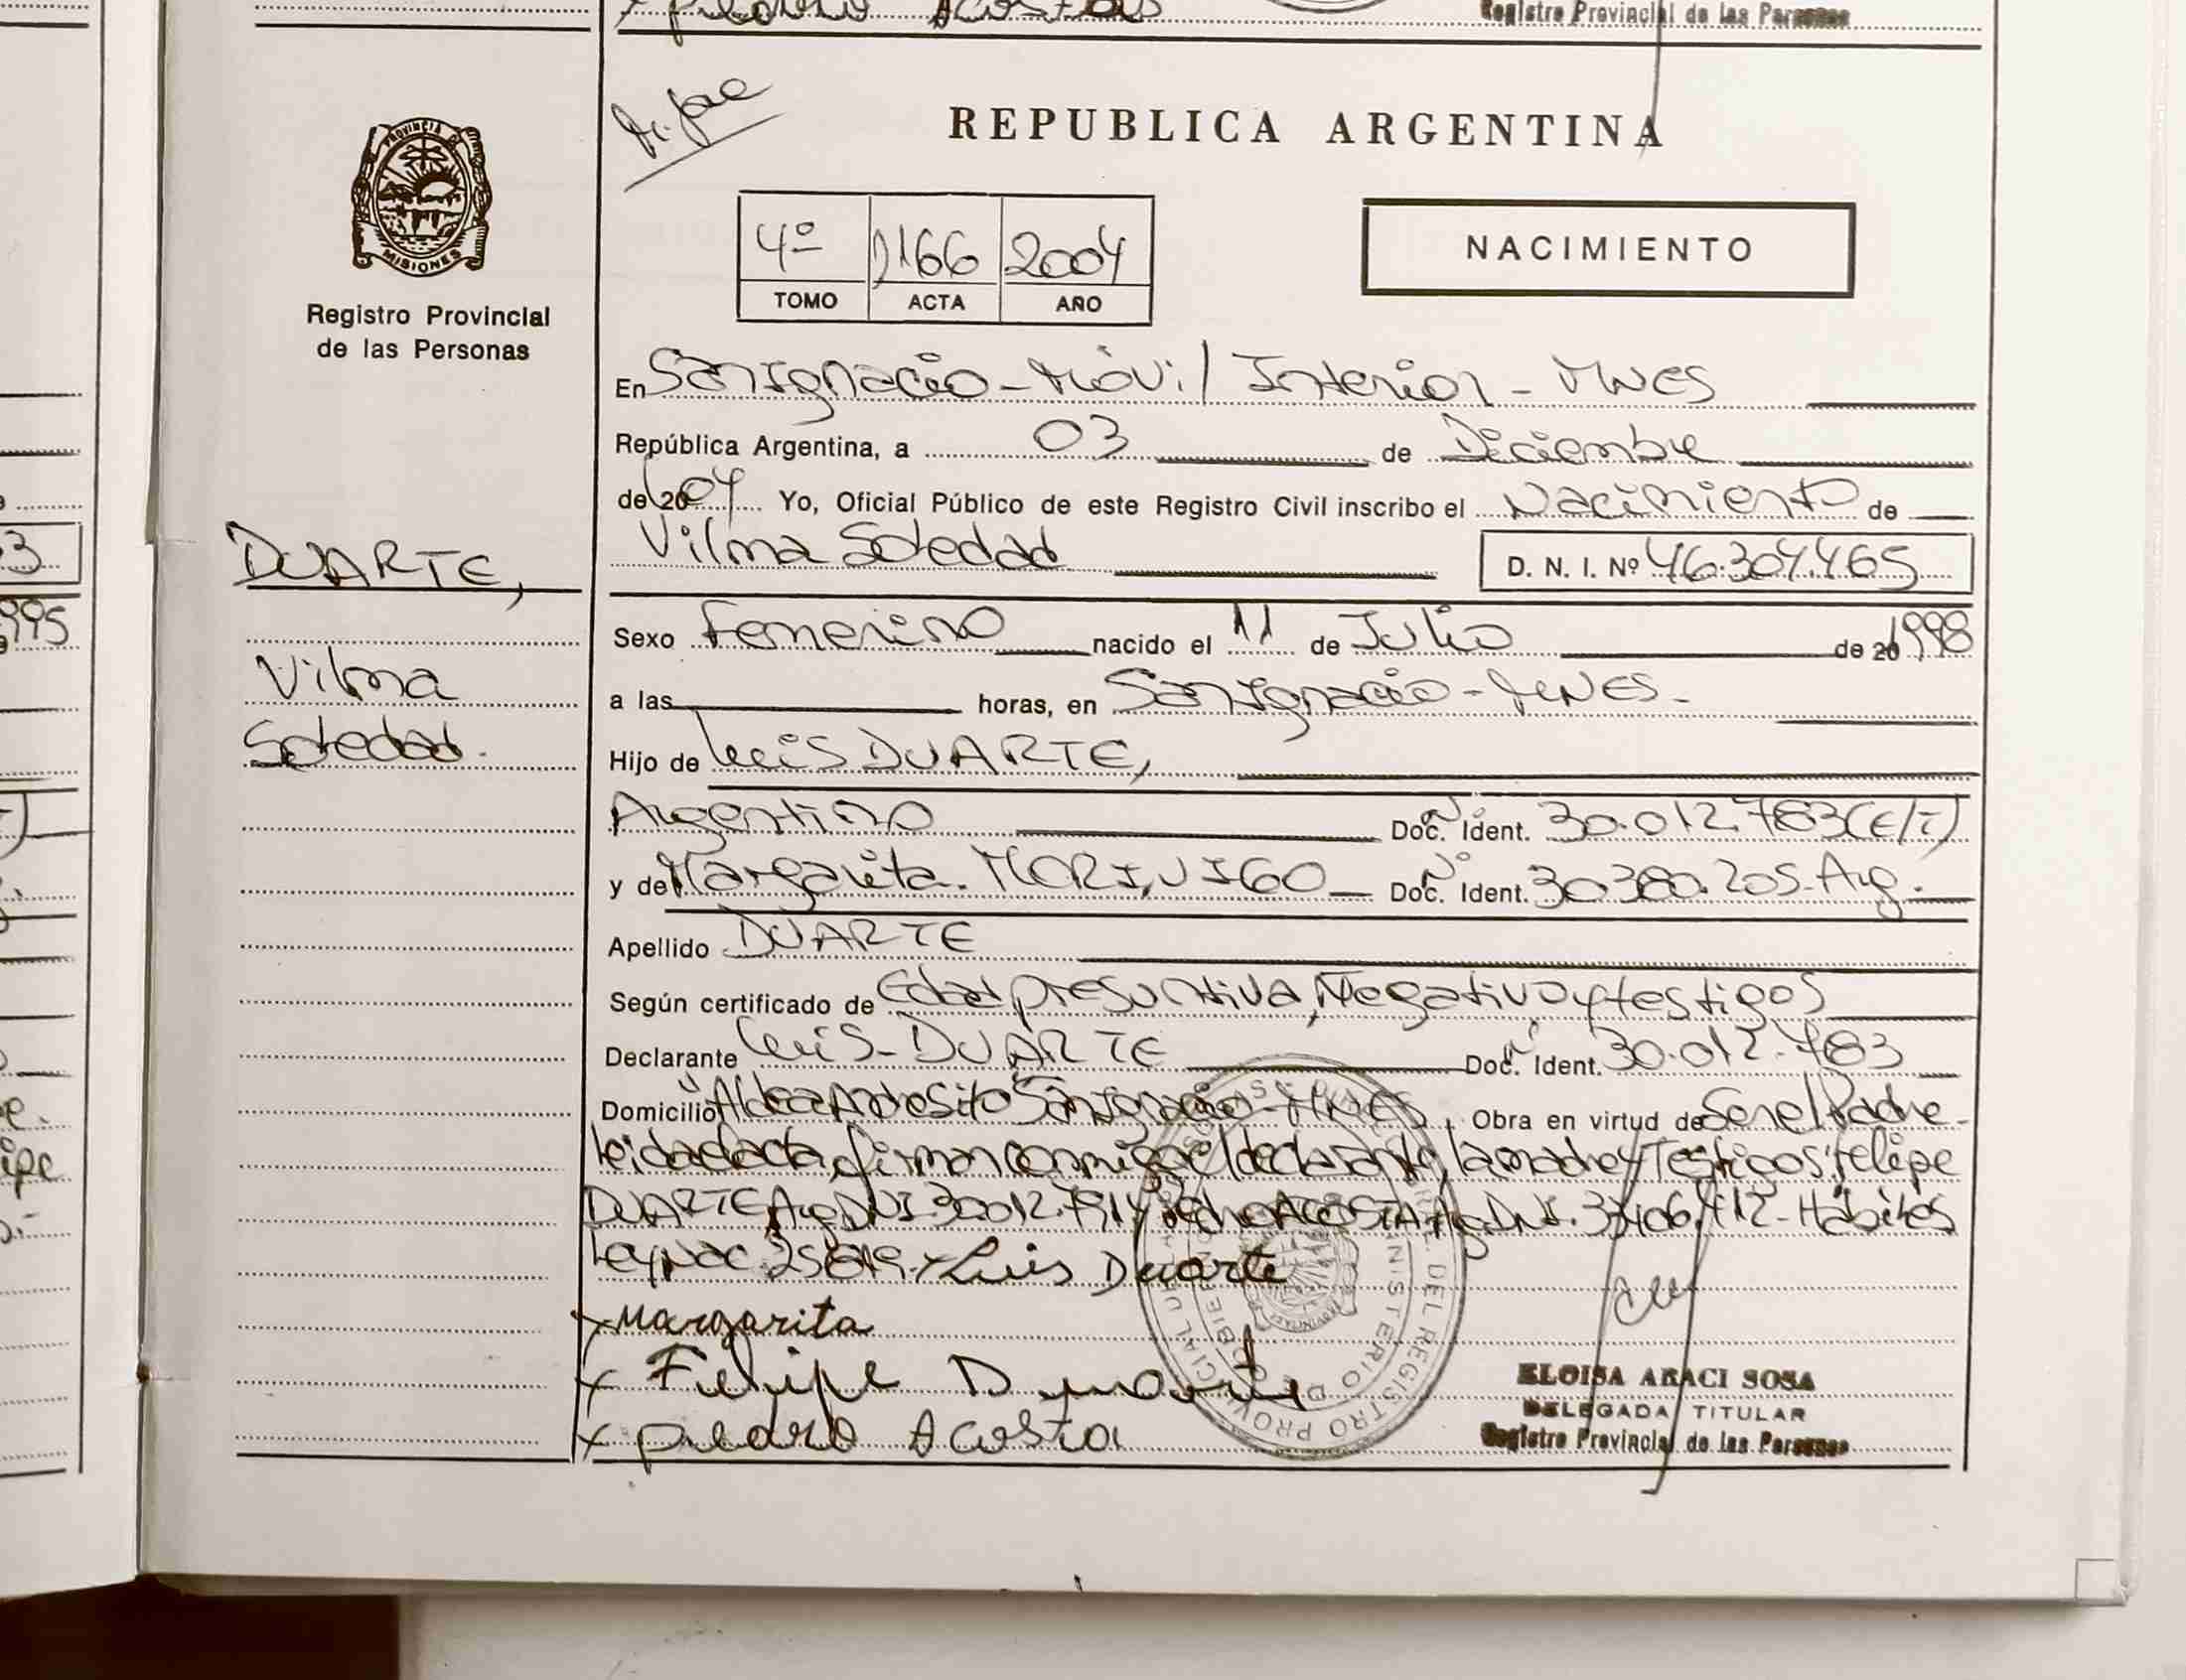 Registro Provincial de las Personas
REPUBLICA ARGENTINA
PROVINCIA DE
MISIONES
Registro Provincial
de las Personas
4º 1166 2004
TOMO ACTA AÑO
NACIMIENTO
En San Ignacio - Móvil Interior - MNES
República Argentina, a 03 de Diciembre
de 2004 Yo, Oficial Público de este Registro Civil inscribo el Nacimiento de
Vilma Soledad D. N. I. Nº 46.304.465
DUARTE,
Vilma
Soledad.
Sexo Femenino nacido el 11 de Julio de 1998
a las horas, en San Ignacio - MNES -
Hijo de Luis DUARTE,
Argentino Doc. Ident. 30.012.783 (E/T)
y de Margarita. MORINIGO Doc. Ident. 30.380.205 - Arg.
Apellido DUARTE
Según certificado de Edad presuntiva, Negativo y testigos
Declarante Luis - DUARTE Doc. Ident. 30.012.783
Domicilio Aldea Andresito San Ignacio - MNES, Obra en virtud de Ser el Padre -
Leida el acta, firman conmigo el declarante, la madre y Testigos: Felipe
DUARTE Arg. DNI. 30.012.791 y Pedro ACOSTA Arg. DNI. Hábiles
Ley Nac. 25819 - x Luis Duarte
x Margarita
x Felipe Duarte
x Pedro Acosta
ELOISA ARACI SOSA
DELEGADA TITULAR
Registro Provincial de las Personas